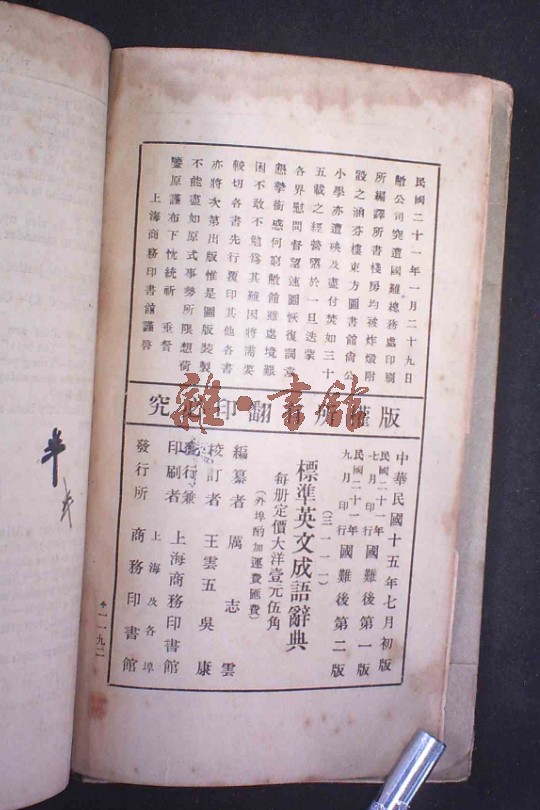 民國二十一年一月二十九日
敝公司突遭國難總務處印刷
所編譯所書棧房均被炸燬附
設之涵芬樓東方圖書館尚公
小學亦遭殃及盡付焚如三十
五載之經營隳於一旦迭蒙
各界慰問督望速圖恢復詞意
懇摯銜感何窮敝館雖處境艱
困不敢不勉爲其難因將需要
較切各書先行覆印其他各書
亦將次第出版惟是圖版裝製
不能盡如原式事勢所限想荷
鑒原謹布下忱統祈 垂詧
上海商務印書館謹啓
版權所有翻印必究
中華民國十五年七月初版
民國二十一年七月印行國難後第一版
民國二十一年九月印行國難後第二版
(三一一一)
標準英文成語辭典
每册定價大洋壹元伍角
(外埠酌加運費匯費)
編纂者 厲志雲
校訂者 王雲五 吳康
發行兼印刷者 上海商務印書館
發行所 上海及各埠 商務印書館
雜·書館
半
半